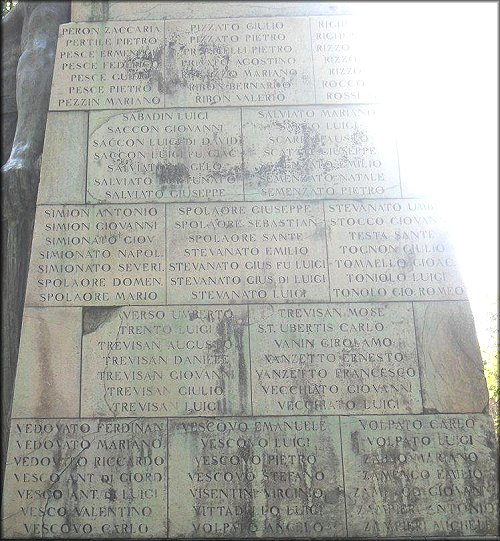 PERON ZACCARIA
PERTILE PIETRO
PESCE ERMEN
PESCE FEDERICO
PESCE GUI
PESCE PIETRO
PEZZIN MARIANO
PIZZATO GIULIO
PIZZATO PIETRO
PIETRO
AGOSTINO
MARIANO
RIBON BERNARDO
RIBON VALERIO
RIGH
RIGH
RIZZO
RIZZO
RIZZO
ROCCO
ROSSI
SABADIN LUIGI
SACCON GIOVANNI
SACCON LUIGI DI DAVID
SACCON LUIGI FU GIAC
SALVIATI ANGELO
SALVIATI
SALVIATO GIUSEPPE
SALVIATO MARIANO
LUIGI
GIUSEPPE
EMILIO
SEMENZATO NATALE
SEMENZATO PIETRO
SIMION ANTONIO
SIMION GIOVANNI
SIMIONATO GIOV
SIMIONATO NAPOL
SIMIONATO SEVERI
SPOLAORE DOMEN
SPOLAORE MARIO
SPOLAORE GIUSEPPE
SPOLAORE SEBASTIAN
SPOLAORE SANTE
STEVANATO EMILIO
STEVANATO GIUS FU LUIGI
STEVANATO GIUS DI LUIGI
STEVANATO LUIGI
STEVANATO
STOCCO GIOVAN
TESTA SANTE
TOGNON GIULIO
TOMAELLO GIOAC
TONIOLO LUIGI
TONOLO GIO ROMEO
AVERSO UMBERTO
TRENTO LUIGI
TREVISAN AUGUSTO
TREVISAN DANIELE
TREVISAN GIOVANNI
TREVISAN GIULIO
TREVISAN LUIGI
TREVISAN MOSE
S.T. UBERTIS CARLO
VANIN GIROLAMO
VANZETTO ERNESTO
VANZETTO FRANCESCO
VECCHIATO GIOVANNI
VECCHIATO LUIGI
VEDOVATO FERDINAN
VEDOVATO MARIANO
VEDOVATO RICCARDO
VESCO ANT. DI GIORD
VESCO ANT. DI LUIGI
VESCO VALENTINO
VESCOVO CARLO
VESCOVO EMANUELE
VESCOVO LUIGI
VESCOVO PIETRO
VESCOVO STEFANO
VISENTINI VIRGINIO
VITTADELLO LUIGI
VOLPATO ANGELO
VOLPATO CARLO
VOLPATO LUIGI
MARIANO
ZAMENGO EMILIO
ZAMENGO GIOVANNI
ZAMPIERI ANTONIO
ZAMPIERI MICHELE